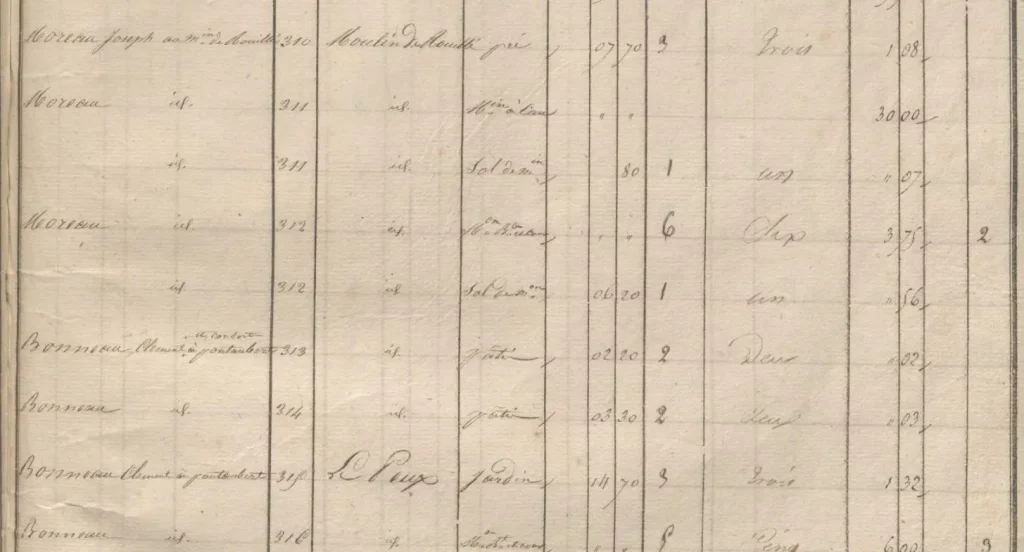 Moreau Joseph au min de Rouillé 310 Moulin de Rouillé pré 07 70 3 Trois 1 08
Moreau id. 311 id. Min à l'eau " " 30 00
id. 311 id. Sol de min 80 1 un " 07
Moreau id. 312 id. " " 6 Six 3 75 2
id. 312 id. Sol de mon 06 20 1 un " 56
Bonneau, Clement à pontaubert 313 id. pâtis 02 20 2 Deux " 02
Bonneau id. 314 id. pâtis 03 30 2 Deux " 03
Bonneau Clement à pontaubert 315 Le Peux Jardin 14 70 3 Trois 1 32
Bonneau id. 316 id. " " 5 Cinq 6 00 3